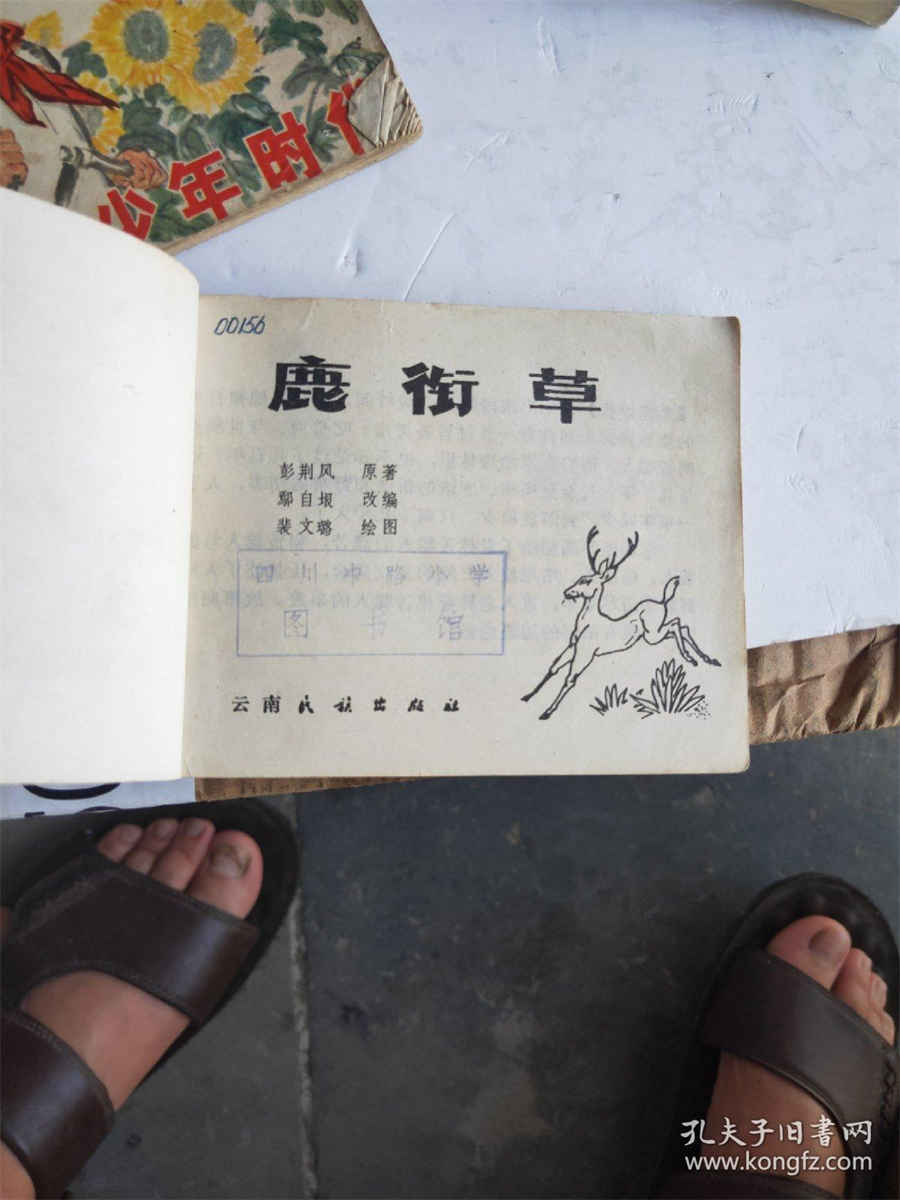 少年时代
00156
鹿衔草
彭荆风 原著
鄢自垠 改编
裴文璐 绘图
四川中路小学
图书馆
云南民族出版社
孔夫子旧书网
www.kongfz.com